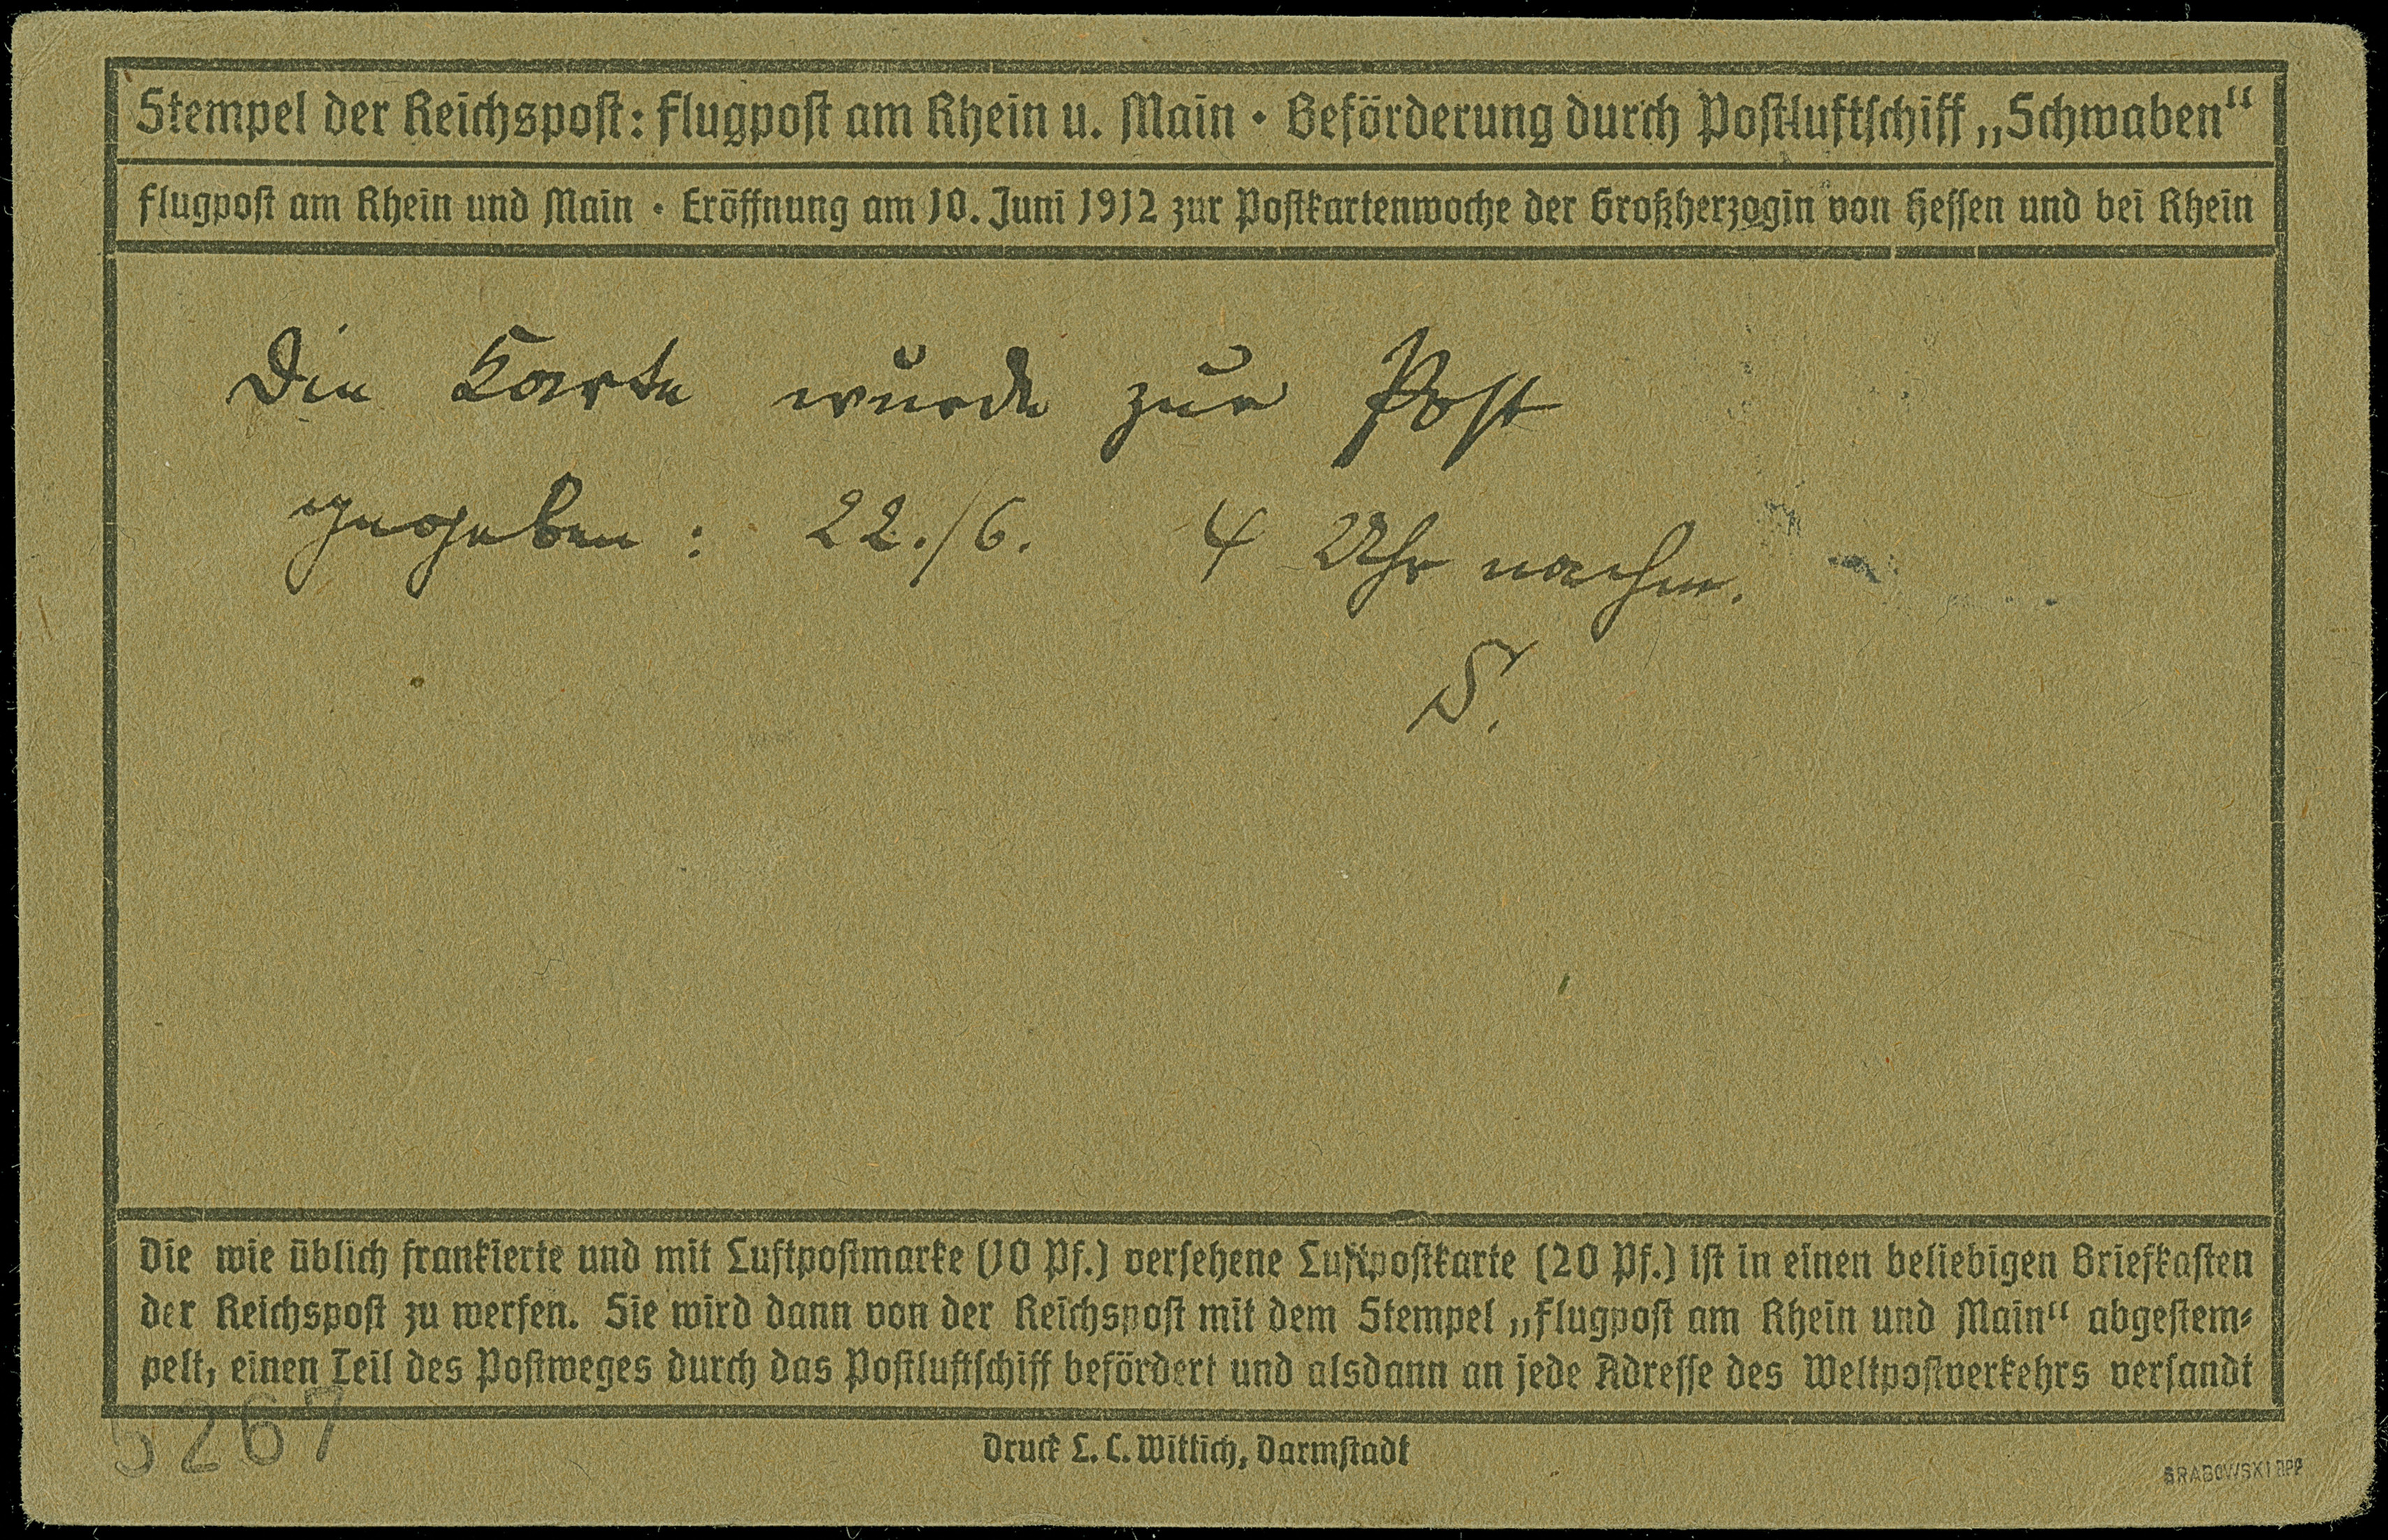 Stempel der Reichspost: Flugpost am Rhein u. Main • Beförderung durch Postluftschiff „Schwaben“
Flugpost am Rhein und Main • Eröffnung am 10. Juni 1912 zur Postkartenwoche der Großherzogin von Hessen und bei Rhein
Die Karte wurde zur Post
gegeben: 22./6. 4 Uhr nachm.
S.
Die wie üblich frankierte und mit Luftpostmarke (10 Pf.) versehene Luftpostkarte (20 Pf.) ist in einen beliebigen Briefkasten
der Reichspost zu werfen. Sie wird dann von der Reichspost mit dem Stempel „Flugpost am Rhein und Main“ abgestem-
pelt, einen Teil des Postweges durch das Postluftschiff befördert und alsdann an jede Adresse des Weltpostverkehrs versandt
5267
Druck L. C. Wittich, Darmstadt
GRABOWSKI BPP